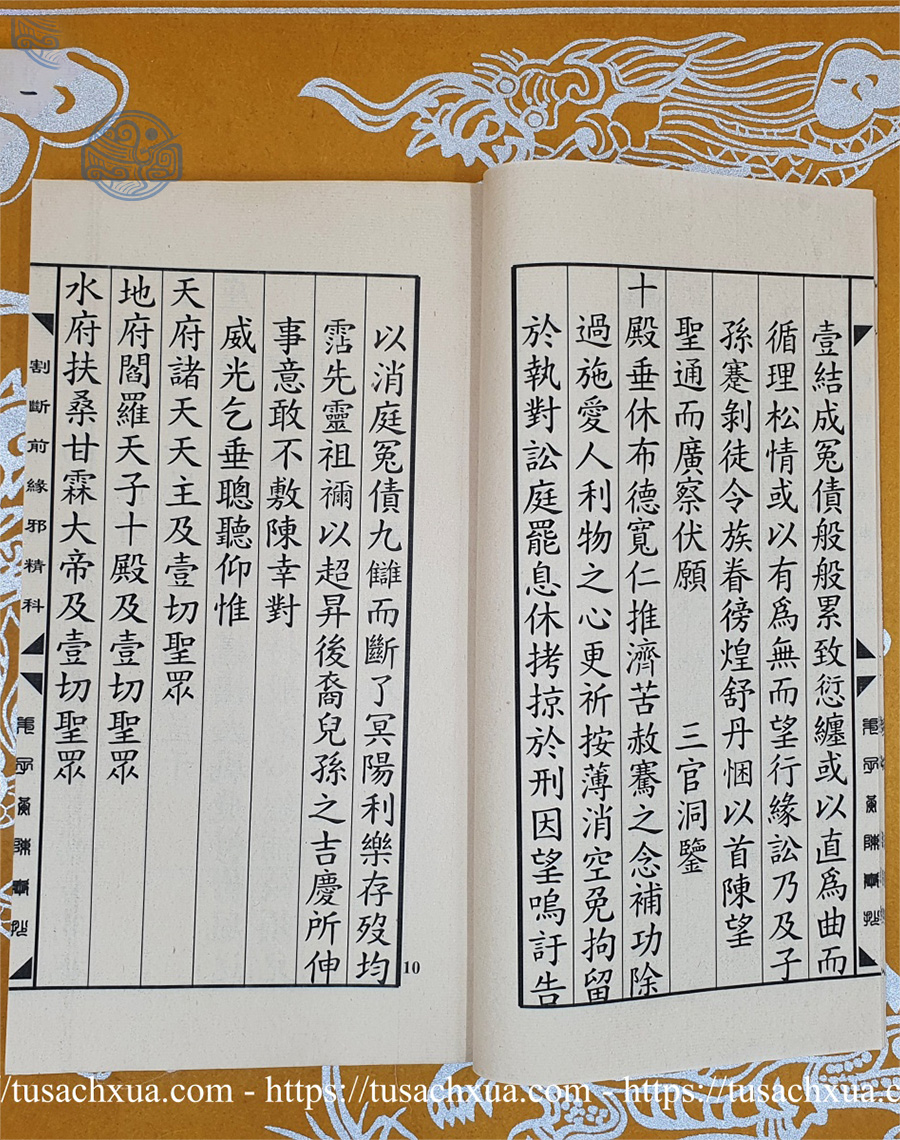 壹結成冤債般般累致愆纏或以直爲曲而
循理松情或以有爲無而望行緣訟乃及子
孫蹇剝徒令族眷徬煌舒丹悃以首陳望
聖通而廣察伏願 三官洞鑒
十殿垂休布德寬仁推濟苦赦騫之念補功除
過施愛人利物之心更祈按薄消空免拘留
於執對訟庭罷息休拷掠於刑因望嗚訏告
以消庭冤債九讎而斷了冥陽利樂存歿均
霑先靈祖禰以超昇後裔兒孫之吉慶所伸
事意敢不敷陳幸對
威光乞垂聰聽仰惟
天府諸天天主及壹切聖眾
地府閻羅天子十殿及壹切聖眾
水府扶桑甘霖大帝及壹切聖眾
割斷前緣邪精科
10
/tusachxua.com - https://tusachxua.com - https://tusachxua.c